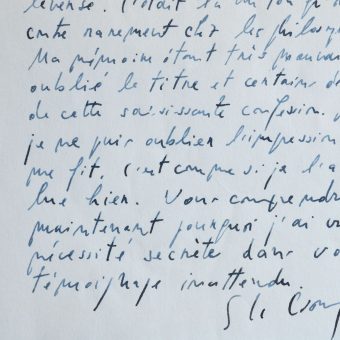 contre rarement chez les philosop
Ma mémoire étant très mauvai
oublié le titre et certains dé
de cette saisissante confession.
je ne puis oublier l'impression
me fit. C'est comme si je l'a
lue hier. Vous comprendre
maintenant pourquoi j'ai v
nécessité secrète dans vo
témoignage inattendu.